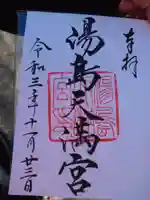 奉拝
湯島天満宮
令和三年十一月廿三日